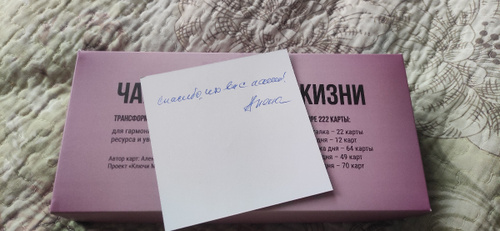 ЧА ЖИЗНИ
ТРАНСФОРМ РЕ 222 КАРТЫ:
для гармон алка – 22 карты
ресурса и ув дня – 12 карт
а дня – 64 карты
Автор карт: Алек дня – 49 карт
Проект «Ключи М – 70 карт
спасибо, что вы с нами!